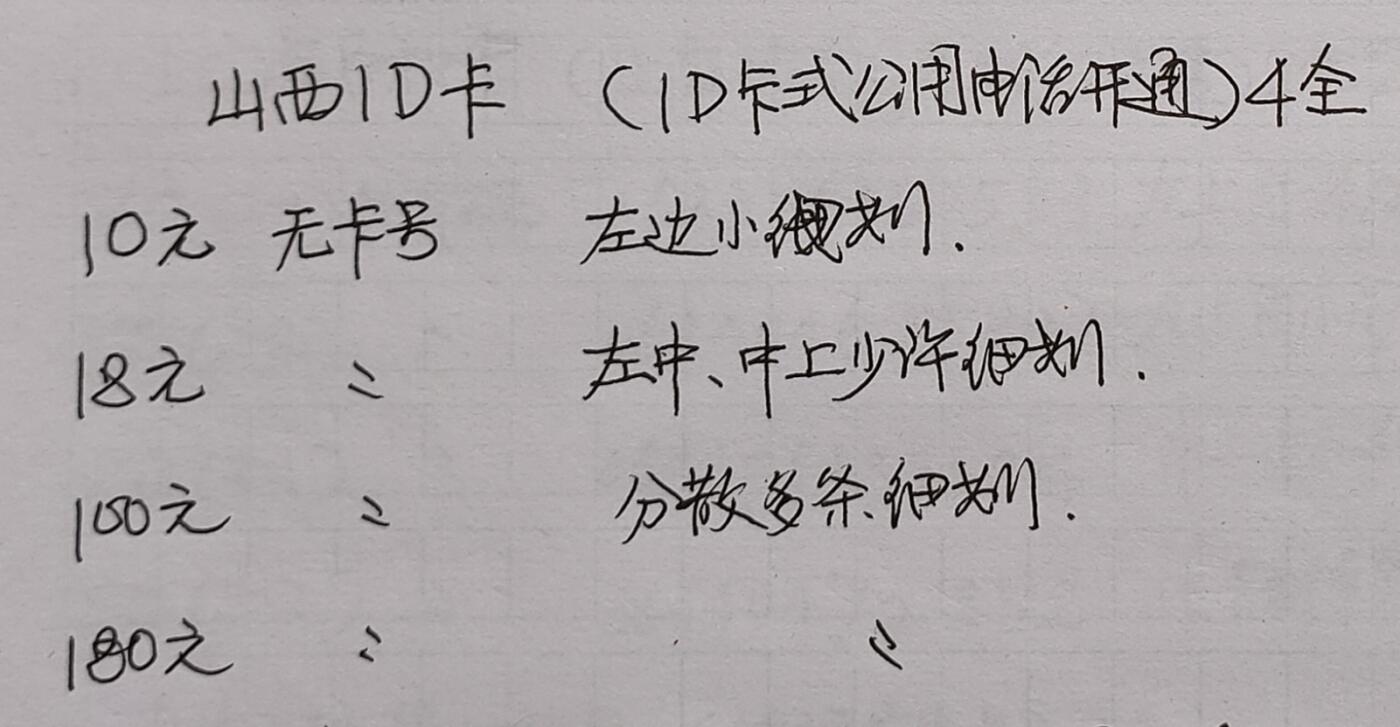 山西ID卡 (ID卡式公用电话开通)4全
10元 无卡号 左边小细划.
18元 〃 左中、中上少许细划.
100元 〃 分散多条细划.
180元 〃 〃